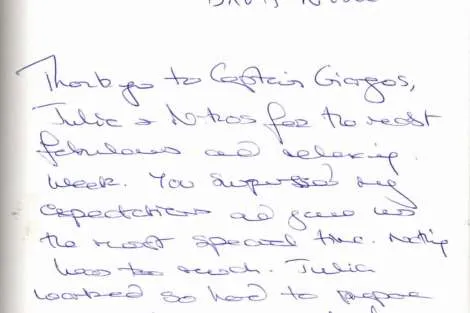 Thank you to Captain Giorgos,
Julia + Nikos for the most
fabulous and relaxing
week. You surpassed my
expectations and gave us
the most special time. Nothing
was too much. Julia
worked so hard to prepare